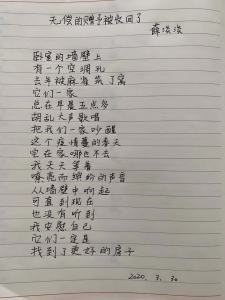 无偿的赠予被收回了
薛淡淡
卧室的墙壁上
有一个空调孔
去年被麻雀筑了窝
它们一家
总在早晨五点多
胡乱大声歌唱
把我们一家吵醒
这个疫情蔓的春天
宅在家哪也不去
我天天等着
嘹亮而缤纷的声音
从墙壁中响起
可直到现在
也没有听到
我安慰自己
它们一定是
找到了更好的房子
2020.3.30